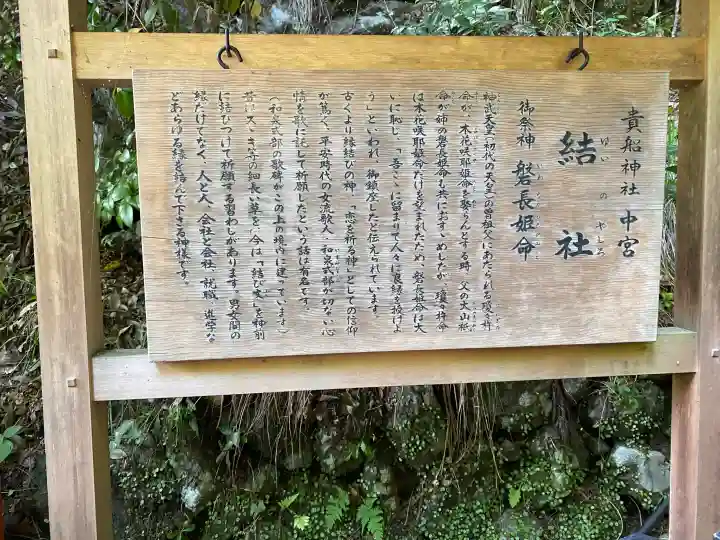 貴船神社 中宮
結社
ゆいのやしろ
御祭神 磐長姫命
神武天皇(初代の天皇)の曽祖父にあたられる瓊々杵
命が、木花咲耶姫命を娶らんとする時、父の大山祇
命が姉の磐長姫命も共におすゝめしたが、瓊々杵命
は木花咲耶姫命だけを望まれたため、磐長姫命は大
いに恥じ、「吾こゝに留まりて人々に良縁を授けよ
う」といわれ、御鎮座したと伝えられています。
古くより縁結びの神、「恋を祈る神」としての信仰
が篤く、平安時代の女流歌人 和泉式部が切ない心
情を歌に託して祈願したという話は有名です。
(和泉式部の歌碑がこの上の境内に建っています)
昔はスヽき等の細長い草を、今は「結び文」を神前
に結びつけて祈願する習わしがあります。男女間の
縁だけでなく、人と人、会社と会社、就職、進学な
どあらゆる縁を結んで下さる神様です。